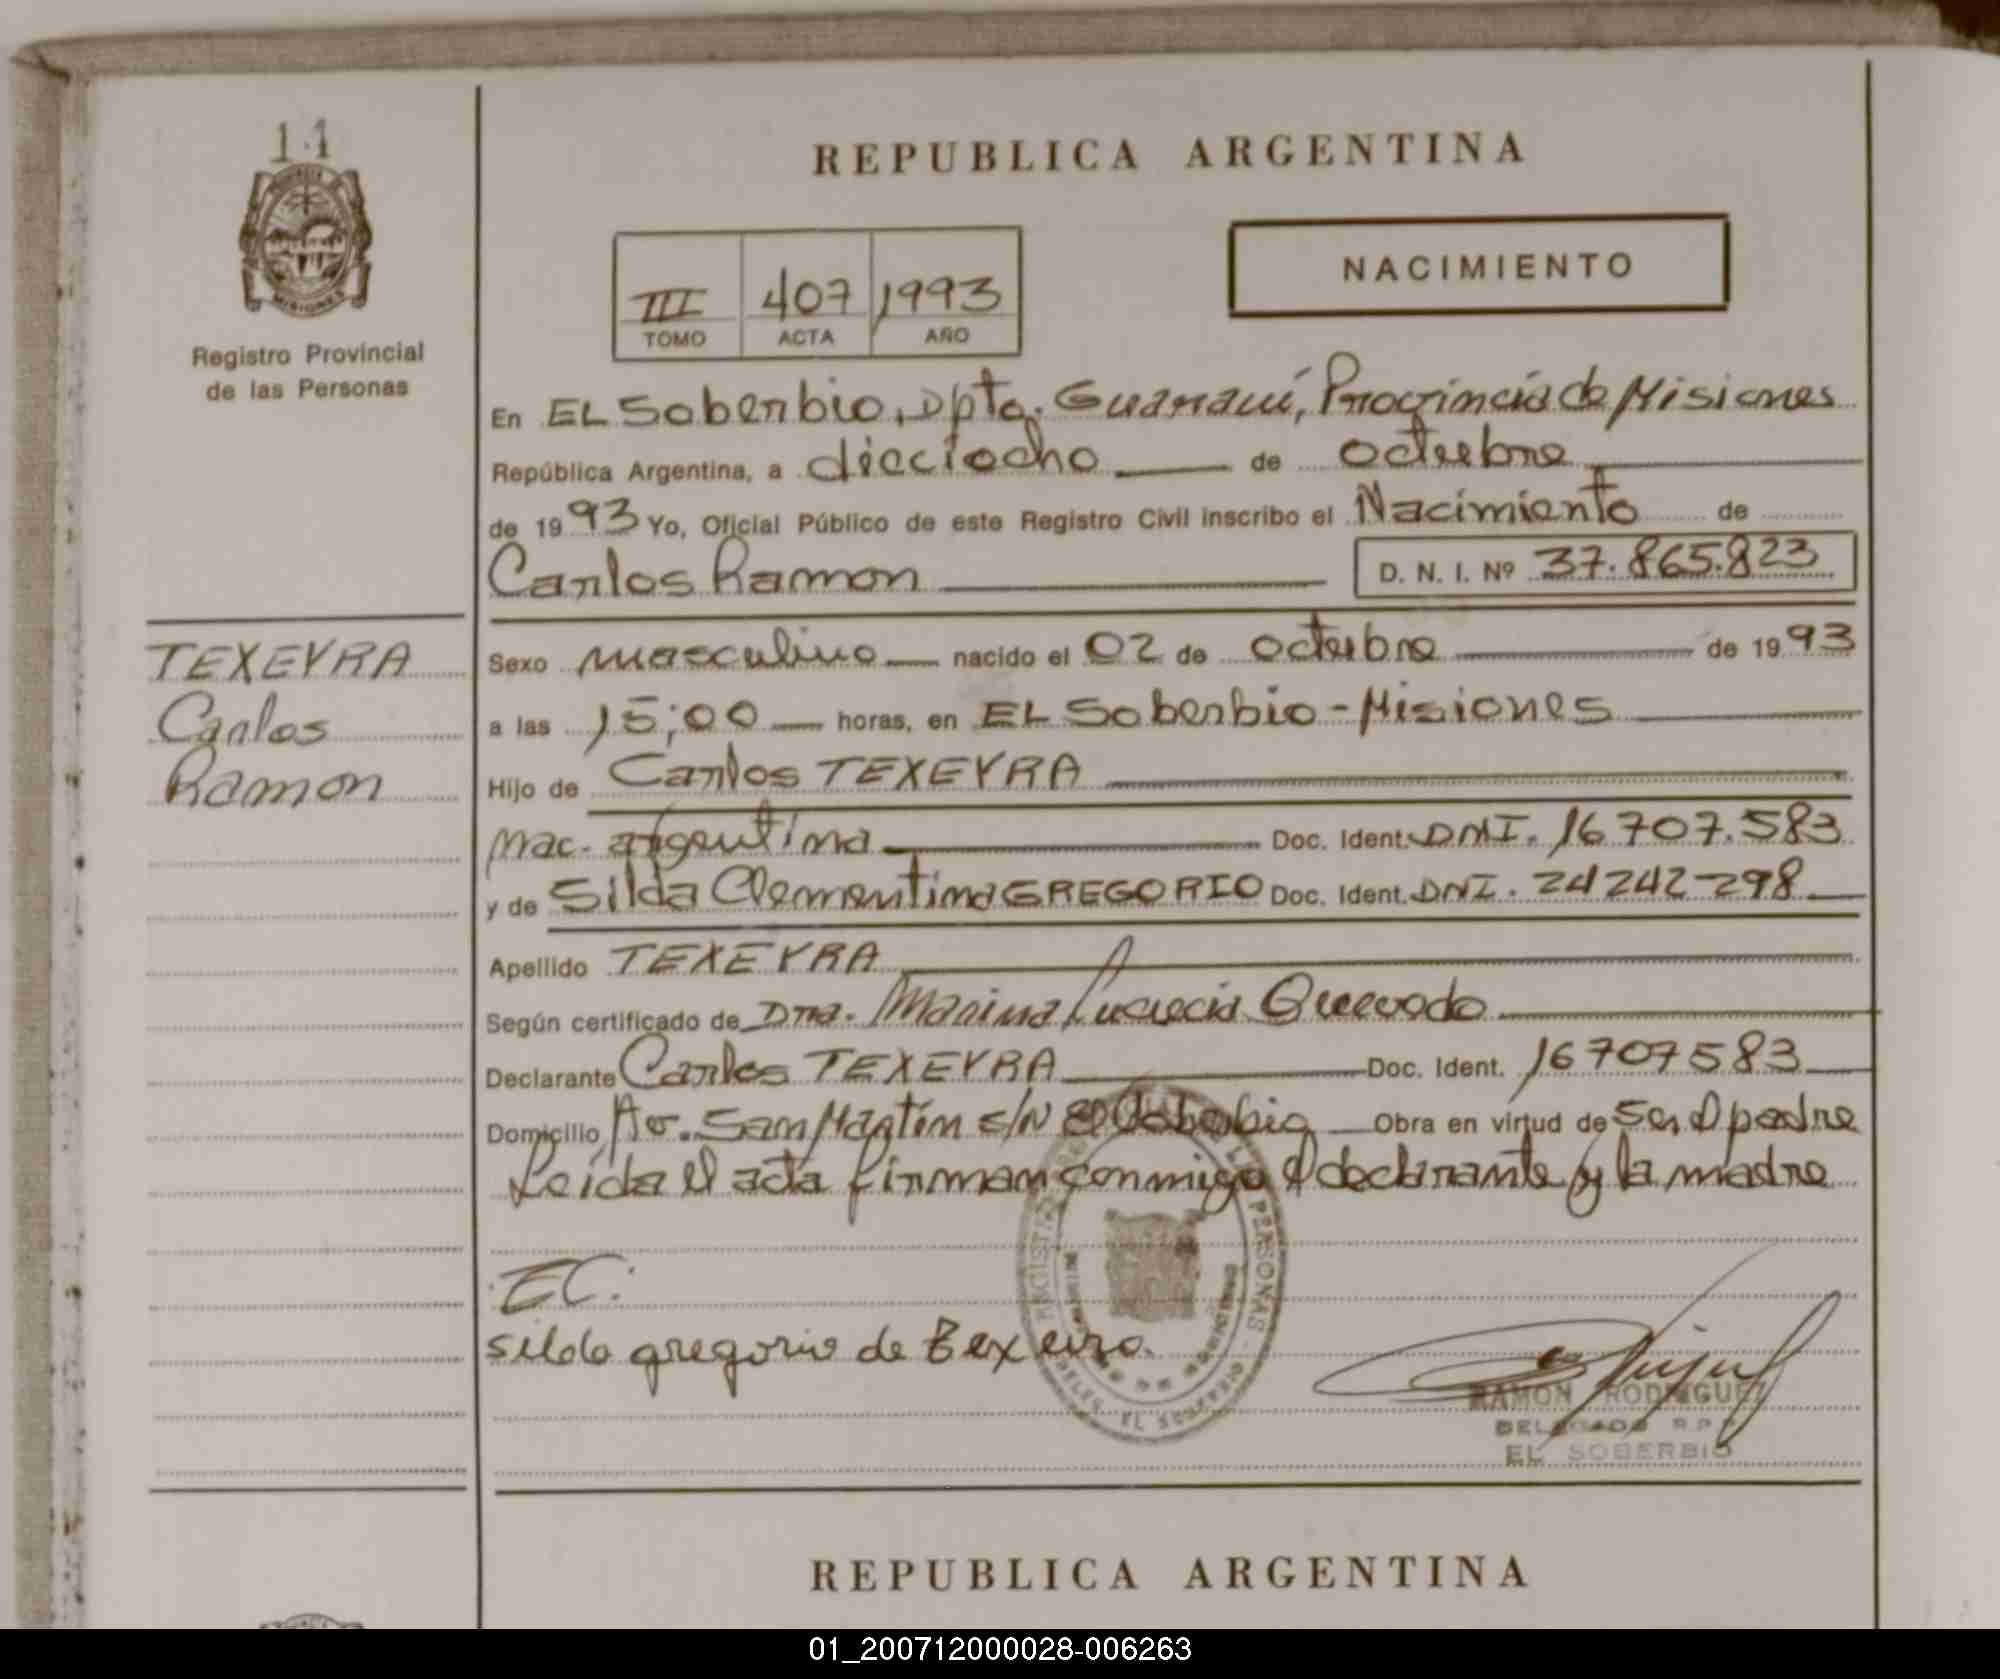 11
MISIONES
Registro Provincial
de las Personas
TEXEYRA
Carlos
Ramon
REPUBLICA ARGENTINA
III 407 1993
TOMO ACTA AÑO
NACIMIENTO
En EL Soberbio, Dpto. Guaraní, Provincia de Misiones
República Argentina, a dieciocho de octubre
de 1993 Yo, Oficial Público de este Registro Civil inscribo el Nacimiento de
Carlos Ramon D. N. I. Nº 37.865.823
Sexo masculino nacido el 02 de octubre de 1993
a las 15;00 horas, en EL Soberbio - Misiones
Hijo de Carlos TEXEYRA
nac. argentina Doc. Ident. DNI. 16.707.583
y de Silda Clementina GREGORIO Doc. Ident. DNI. 24242298
Apellido TEXEYRA
Según certificado de Dra. Marina Lucrecia Quevedo
Declarante Carlos TEXEYRA Doc. Ident. 16707583
Domicilio Av. San Martín S/N El Soberbio Obra en virtud de Ser el padre
Leída el acta firman conmigo el declarante y la madre
EC:
silda gregorio de Texeira.
PERSONAS
RAMON RODRIGUEZ
DELEGADO R.P.P
EL SOBERBIO
REPUBLICA ARGENTINA
01_200712000028-006263